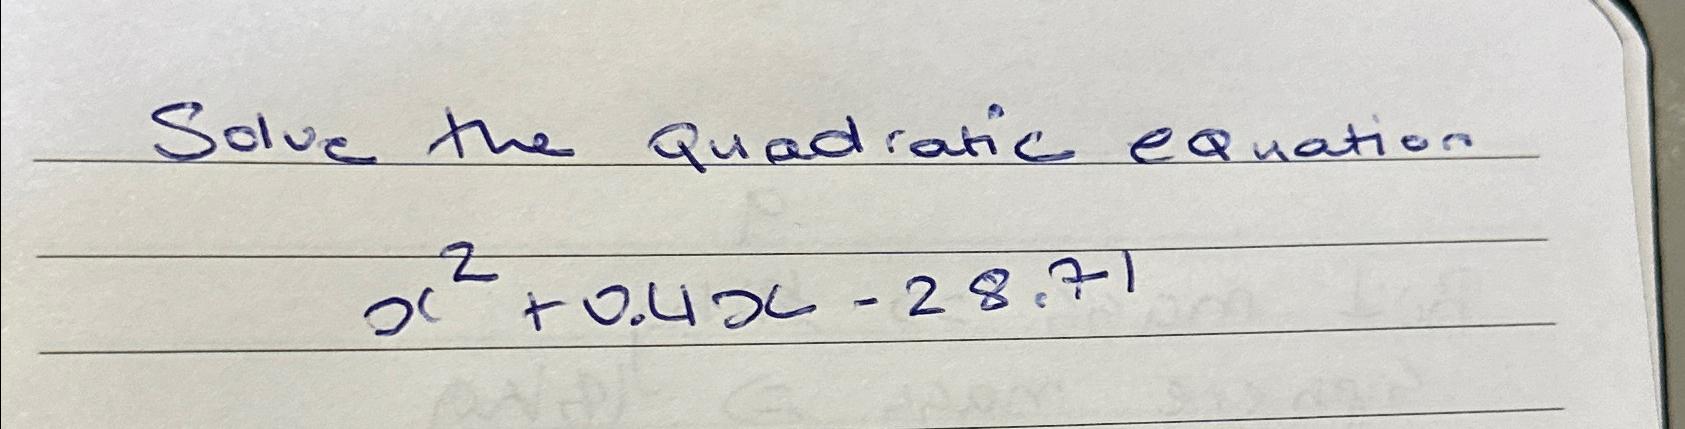 Solve the quadratic equation
x² + 0.4x - 28.71